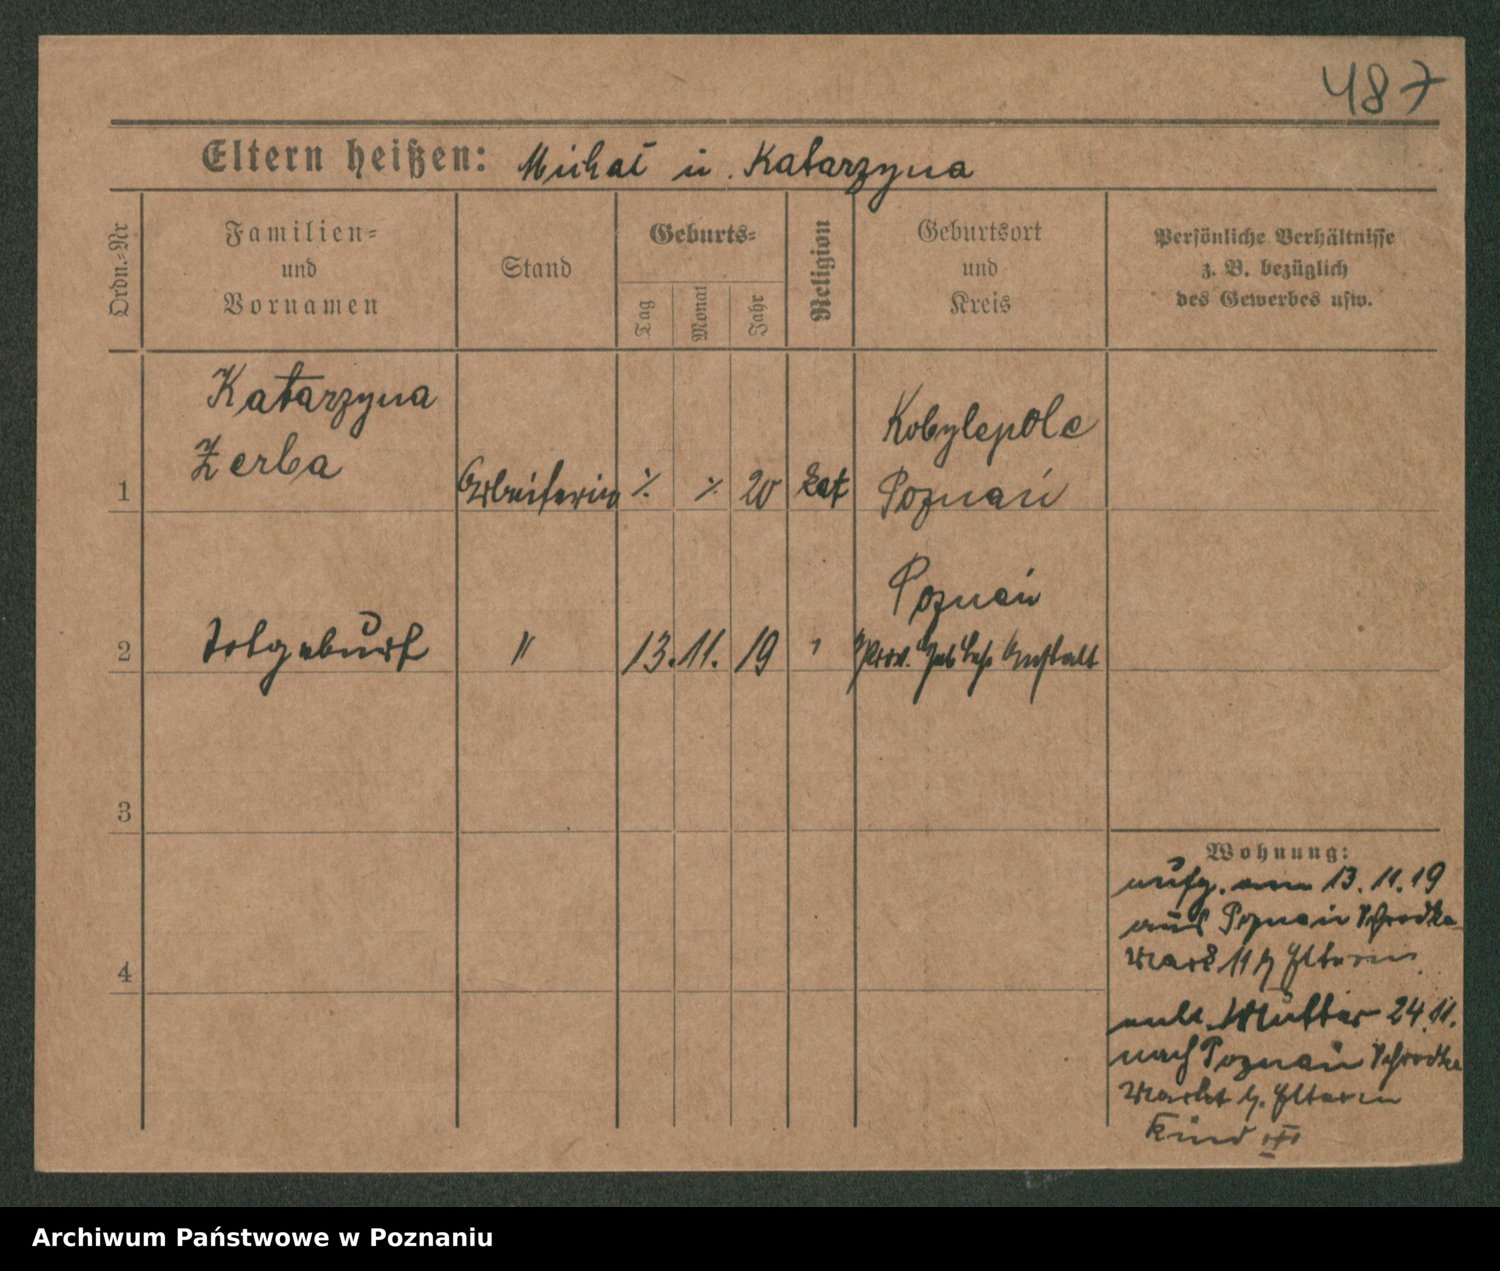 487
Eltern heißen: Michał u. Katarzyna
Ordn.-Nr
Familien-
und
Vornamen
Stand
Geburts-
Tag
Monat
Jahr
Religion
Geburtsort
und
Kreis
Persönliche Verhältnisse
z. B. bezüglich
des Gewerbes usw.
Katarzyna
Zerba
1 Arbeiterin ./. ./. 20 kat
Kobylepole
Poznań
Poznań
2 Totgeburt " 13. 11. 19 " Prov. Geb Anstalt
3
4
Wohnung:
aufg. am 13.11.19
aus Poznań Schrodka
Markt 11 b Eltern
entl. Mutter 24.11.
nach Poznań Schrodka
Markt b. Eltern
Kind
Archiwum Państwowe w Poznaniu